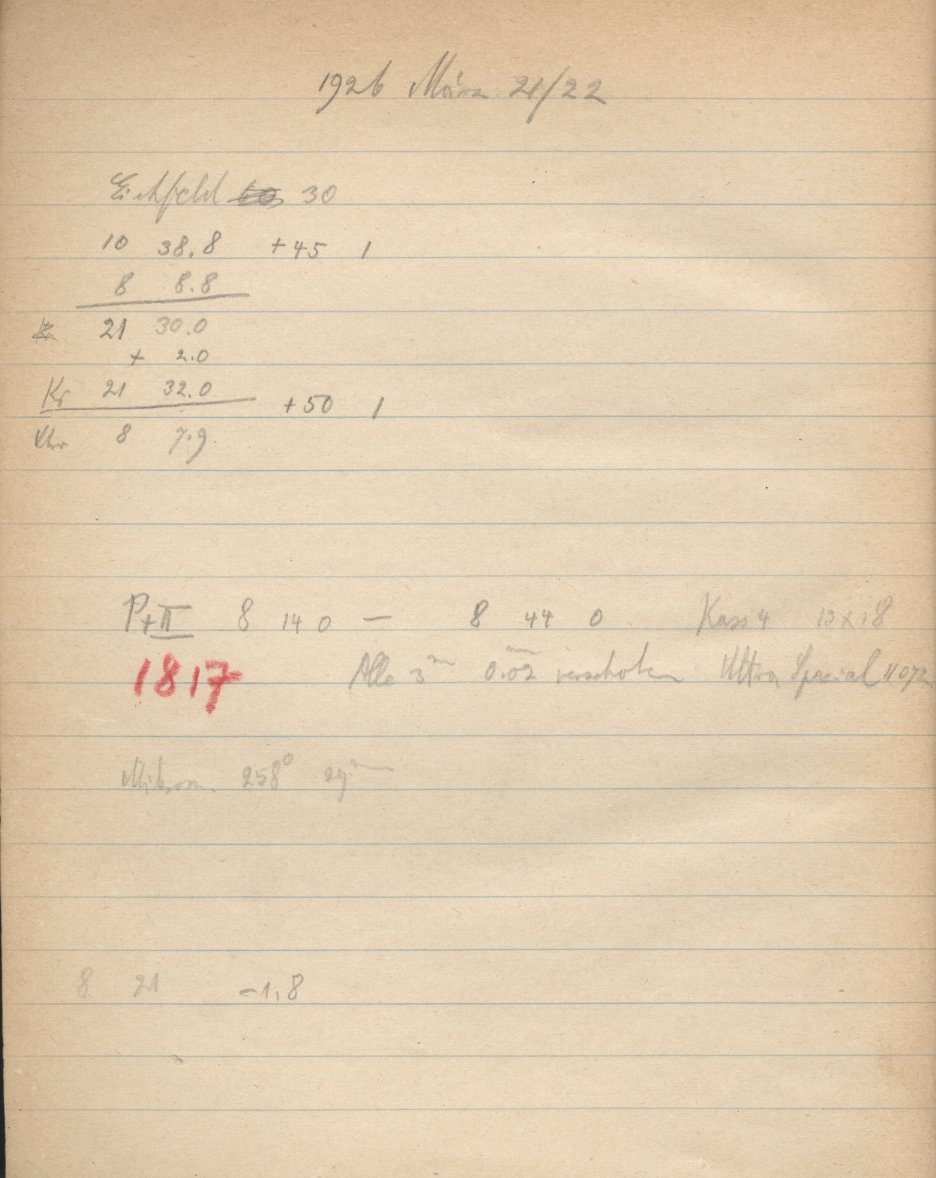 1926 März 21/22
Eichfeld 30
10 38.8 +45 1
8 8.8
21 30.0
+ 2.0
Kr 21 32.0
+50 1
Uhr 8 7.9
P+II 8 14 0 — 8 44 0 Kass 4 13x18
1817 Alle 3m 0.02mm verschoben Ultra Special 11072
Mikrom. 258° 29mm
8 21 -1,8